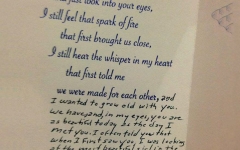 just look into your eyes,
I still feel that spark of fire
that first brought us close,
I still hear the whisper in my heart
that first told me
we were made for each other, and
I wanted to grow old with you.
We have, and, in my eyes, you are
as beautiful today as the day I
met you. I often told you that
when I first saw you, I was looking
at the most beautiful girl in the